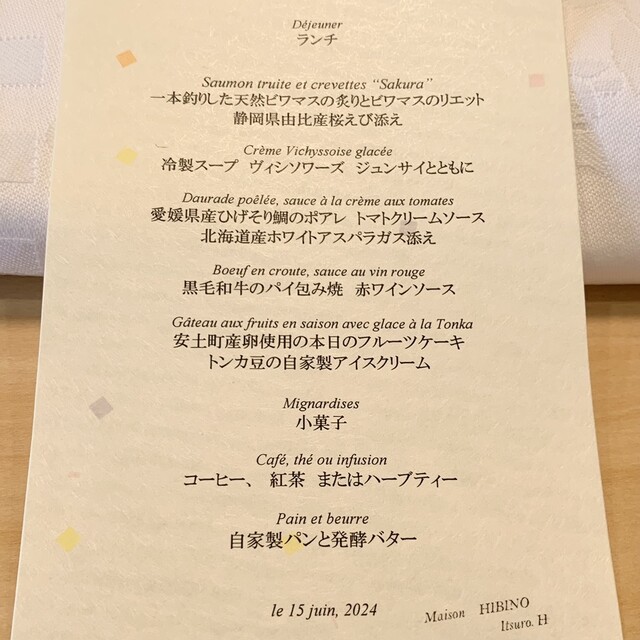 Déjeuner
ランチ
Saumon truite et crevettes “Sakura”
一本釣りした天然ビワマスの炙りとビワマスのリエット
静岡県由比産桜えび添え
Crème Vichyssoise glacée
冷製スープ ヴィシソワーズ ジュンサイとともに
Daurade poêlée, sauce à la crème aux tomates
愛媛県産ひげそり鯛のポアレ トマトクリームソース
北海道産ホワイトアスパラガス添え
Boeuf en croute, sauce au vin rouge
黒毛和牛のパイ包み焼 赤ワインソース
Gâteau aux fruits en saison avec glace à la Tonka
安土町産卵使用の本日のフルーツケーキ
トンカ豆の自家製アイスクリーム
Mignardises
小菓子
Café, thé ou infusion
コーヒー、 紅茶 またはハーブティー
Pain et beurre
自家製パンと発酵バター
le 15 juin, 2024
Maison HIBINO
Itsuro. H